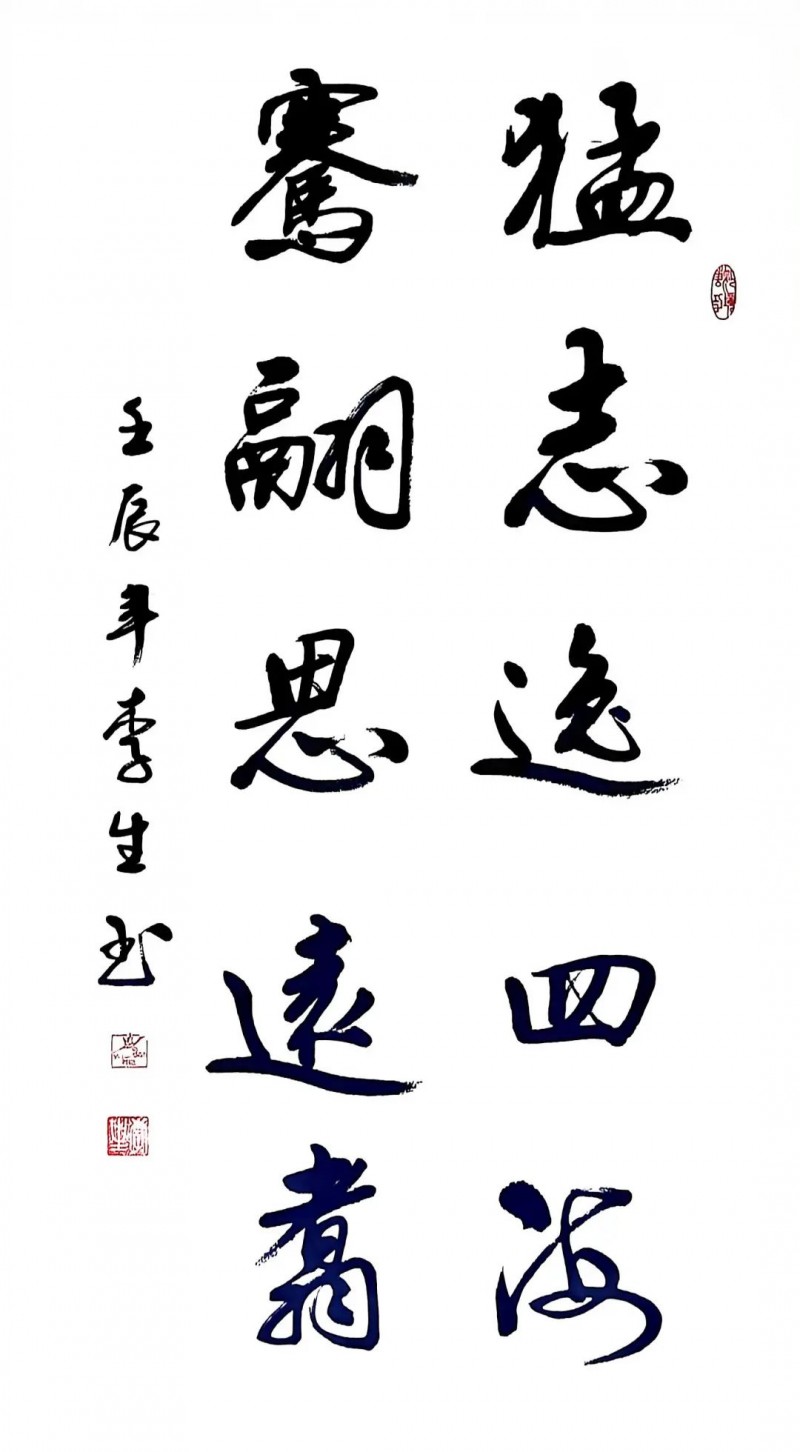 猛志逸四海
騫翮思遠翥
壬辰年李生书